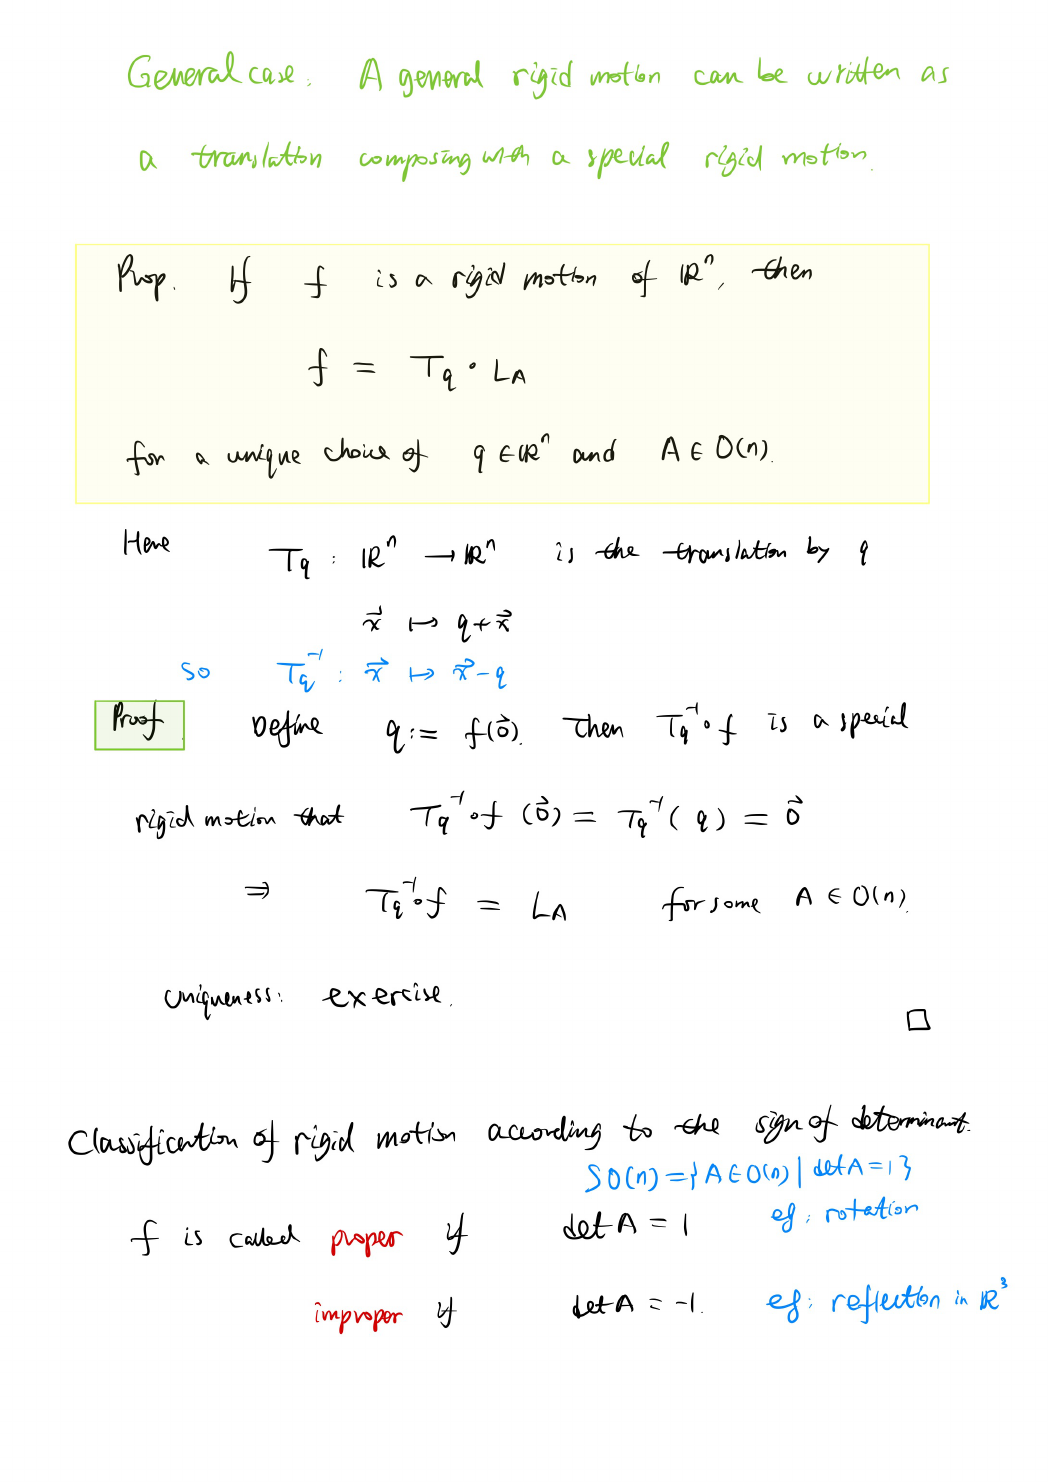 General case. A general rigid motion can be written as
a translation composing with a special rigid motion.
Prop. If f is a rigid motion of ℝⁿ, then
f = T_q ∘ L_A
for a unique choice of q ∈ ℝⁿ and A ∈ O(n).
Here T_q : ℝⁿ → ℝⁿ is the translation by q
x⃗ ↦ q + x⃗
So T_q⁻¹ : x⃗ ↦ x⃗ - q
Proof Define q := f(0⃗). Then T_q⁻¹ ∘ f is a special
rigid motion that T_q⁻¹ ∘ f (0⃗) = T_q⁻¹ ( q ) = 0⃗
⇒ T_q⁻¹ ∘ f = L_A for some A ∈ O(n).
Uniqueness: exercise.
□
Classification of rigid motion according to the sign of determinant.
SO(n) = { A ∈ O(n) | det A = 1 }
f is called proper if det A = 1 eg: rotation
improper if det A = -1. eg: reflection in ℝ³